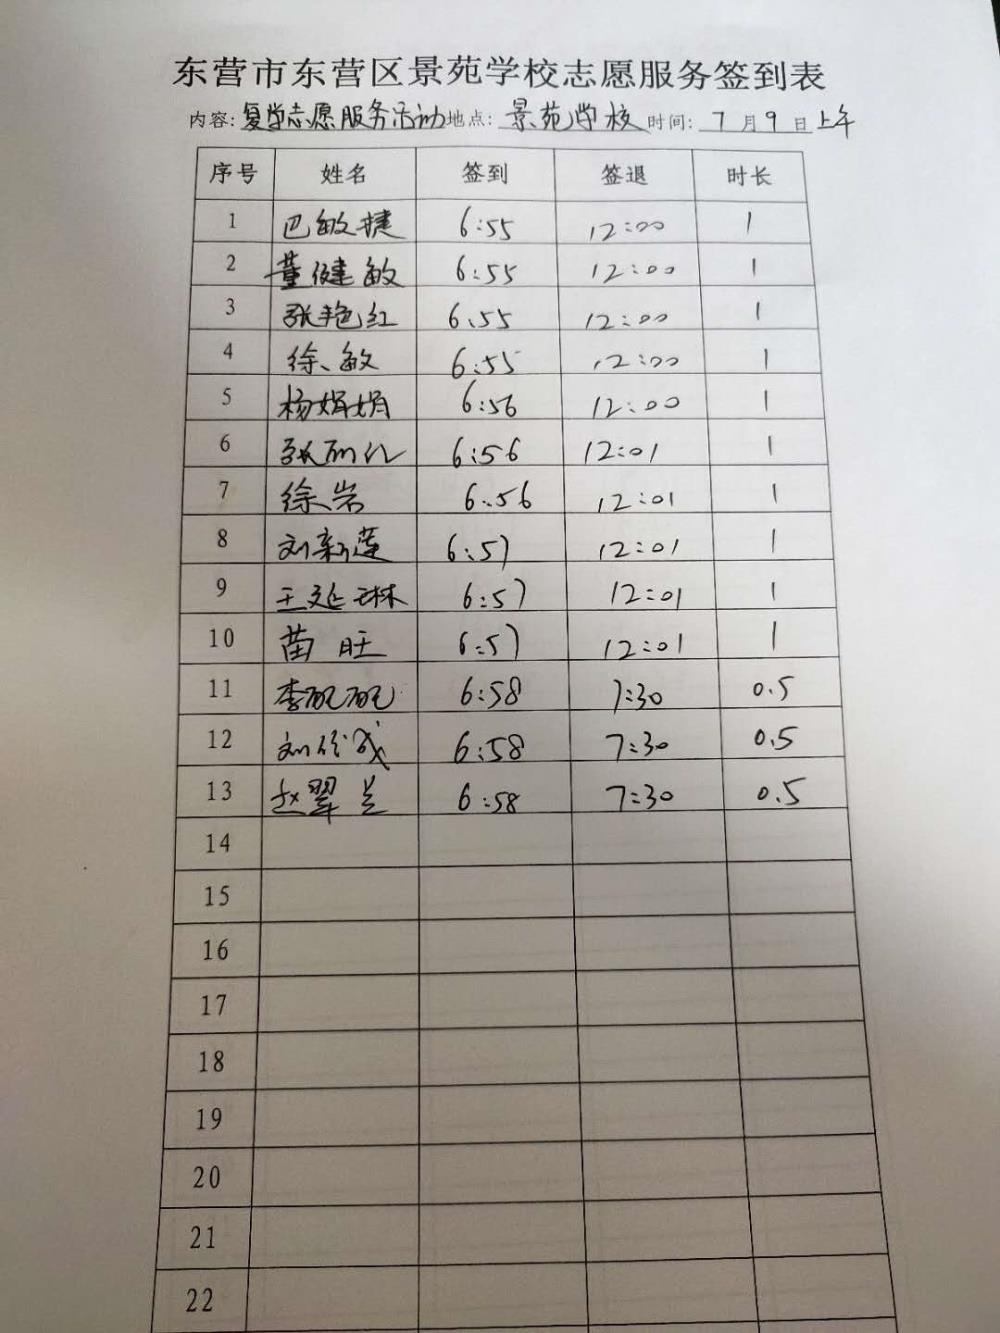 东营市东营区景苑学校志愿服务签到表
内容: 复学志愿服务活动 地点: 景苑学校 时间: 7月9日上午
序号 姓名 签到 签退 时长
1 巴敏捷 6:55 12:00 1
2 董健敏 6:55 12:00 1
3 张艳红 6:55 12:00 1
4 徐敏 6:55 12:00 1
5 杨娟娟 6:56 12:00 1
6 6:56 12:01 1
7 徐岩 6:56 12:01 1
8 刘新莲 6:57 12:01 1
9 王延琳 6:57 12:01 1
10 苗旺 6:57 12:01 1
11 6:58 7:30 0.5
12 6:58 7:30 0.5
13 赵翠兰 6:58 7:30 0.5
14
15
16
17
18
19
20
21
22